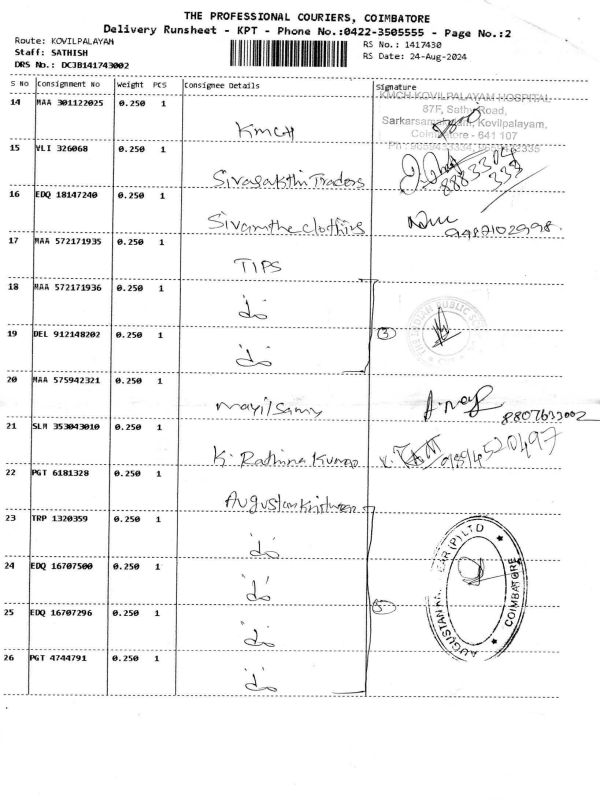 THE PROFESSIONAL COURIERS, COIMBATORE
Delivery Runsheet - KPT - Phone No.:0422-3505555 - Page No.:2
Route: KOVILPALAYAM
Staff: SATHISH
DRS No.: DCJB141743002
RS No.: 1417430
RS Date: 24-Aug-2024
S No Consignment No Weight PCS Consignee Details Signature
14 MAA 301122025 0.250 1 KMCH
KMCH KOVILPALAYAM HOSPITAL
87F, Sathy Road,
Kovilpalayam,
Coimbatore - 641 107
15 VLI 326068 0.250 1 Sivasakthi Traders
16 EDQ 18147240 0.250 1 Sivamthe clothins
17 MAA 572171935 0.250 1 TIPS
18 MAA 572171936 0.250 1 do
19 DEL 912148202 0.250 1 do 3
20 MAA 575942321 0.250 1 Mayilsamy
8807633002
21 SLM 353043010 0.250 1 K. Rathina Kumar
22 PGT 6181328 0.250 1 Augustan Knitwear
23 TRP 1320359 0.250 1 do
24 EDQ 16707500 0.250 1 do
25 EDQ 16707296 0.250 1 do 5
26 PGT 4744791 0.250 1 do
AUGUSTAN (P) LTD
COIMBATORE